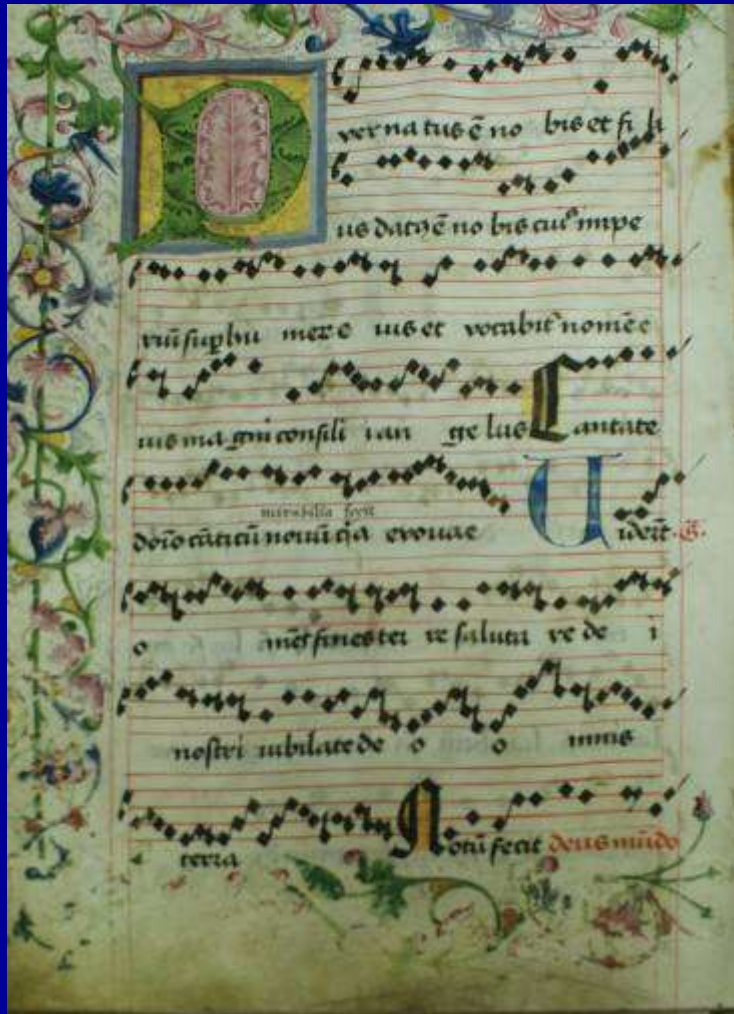 Puer na tus ē no bis et fi li
us datꝰ ē no bis cuiꝰ impe
riū sup hu mer e ius et vocabit̉ nomē e
ius ma gni consili i an ge lus Cantate
mirabilia fecit
dño cāticū novū q̇a evovae Uiderūt. G̃.
o mēs fines ter re saluta re de i
nostri iubilate de o o mnis
terra Notū fecit deus mūdo